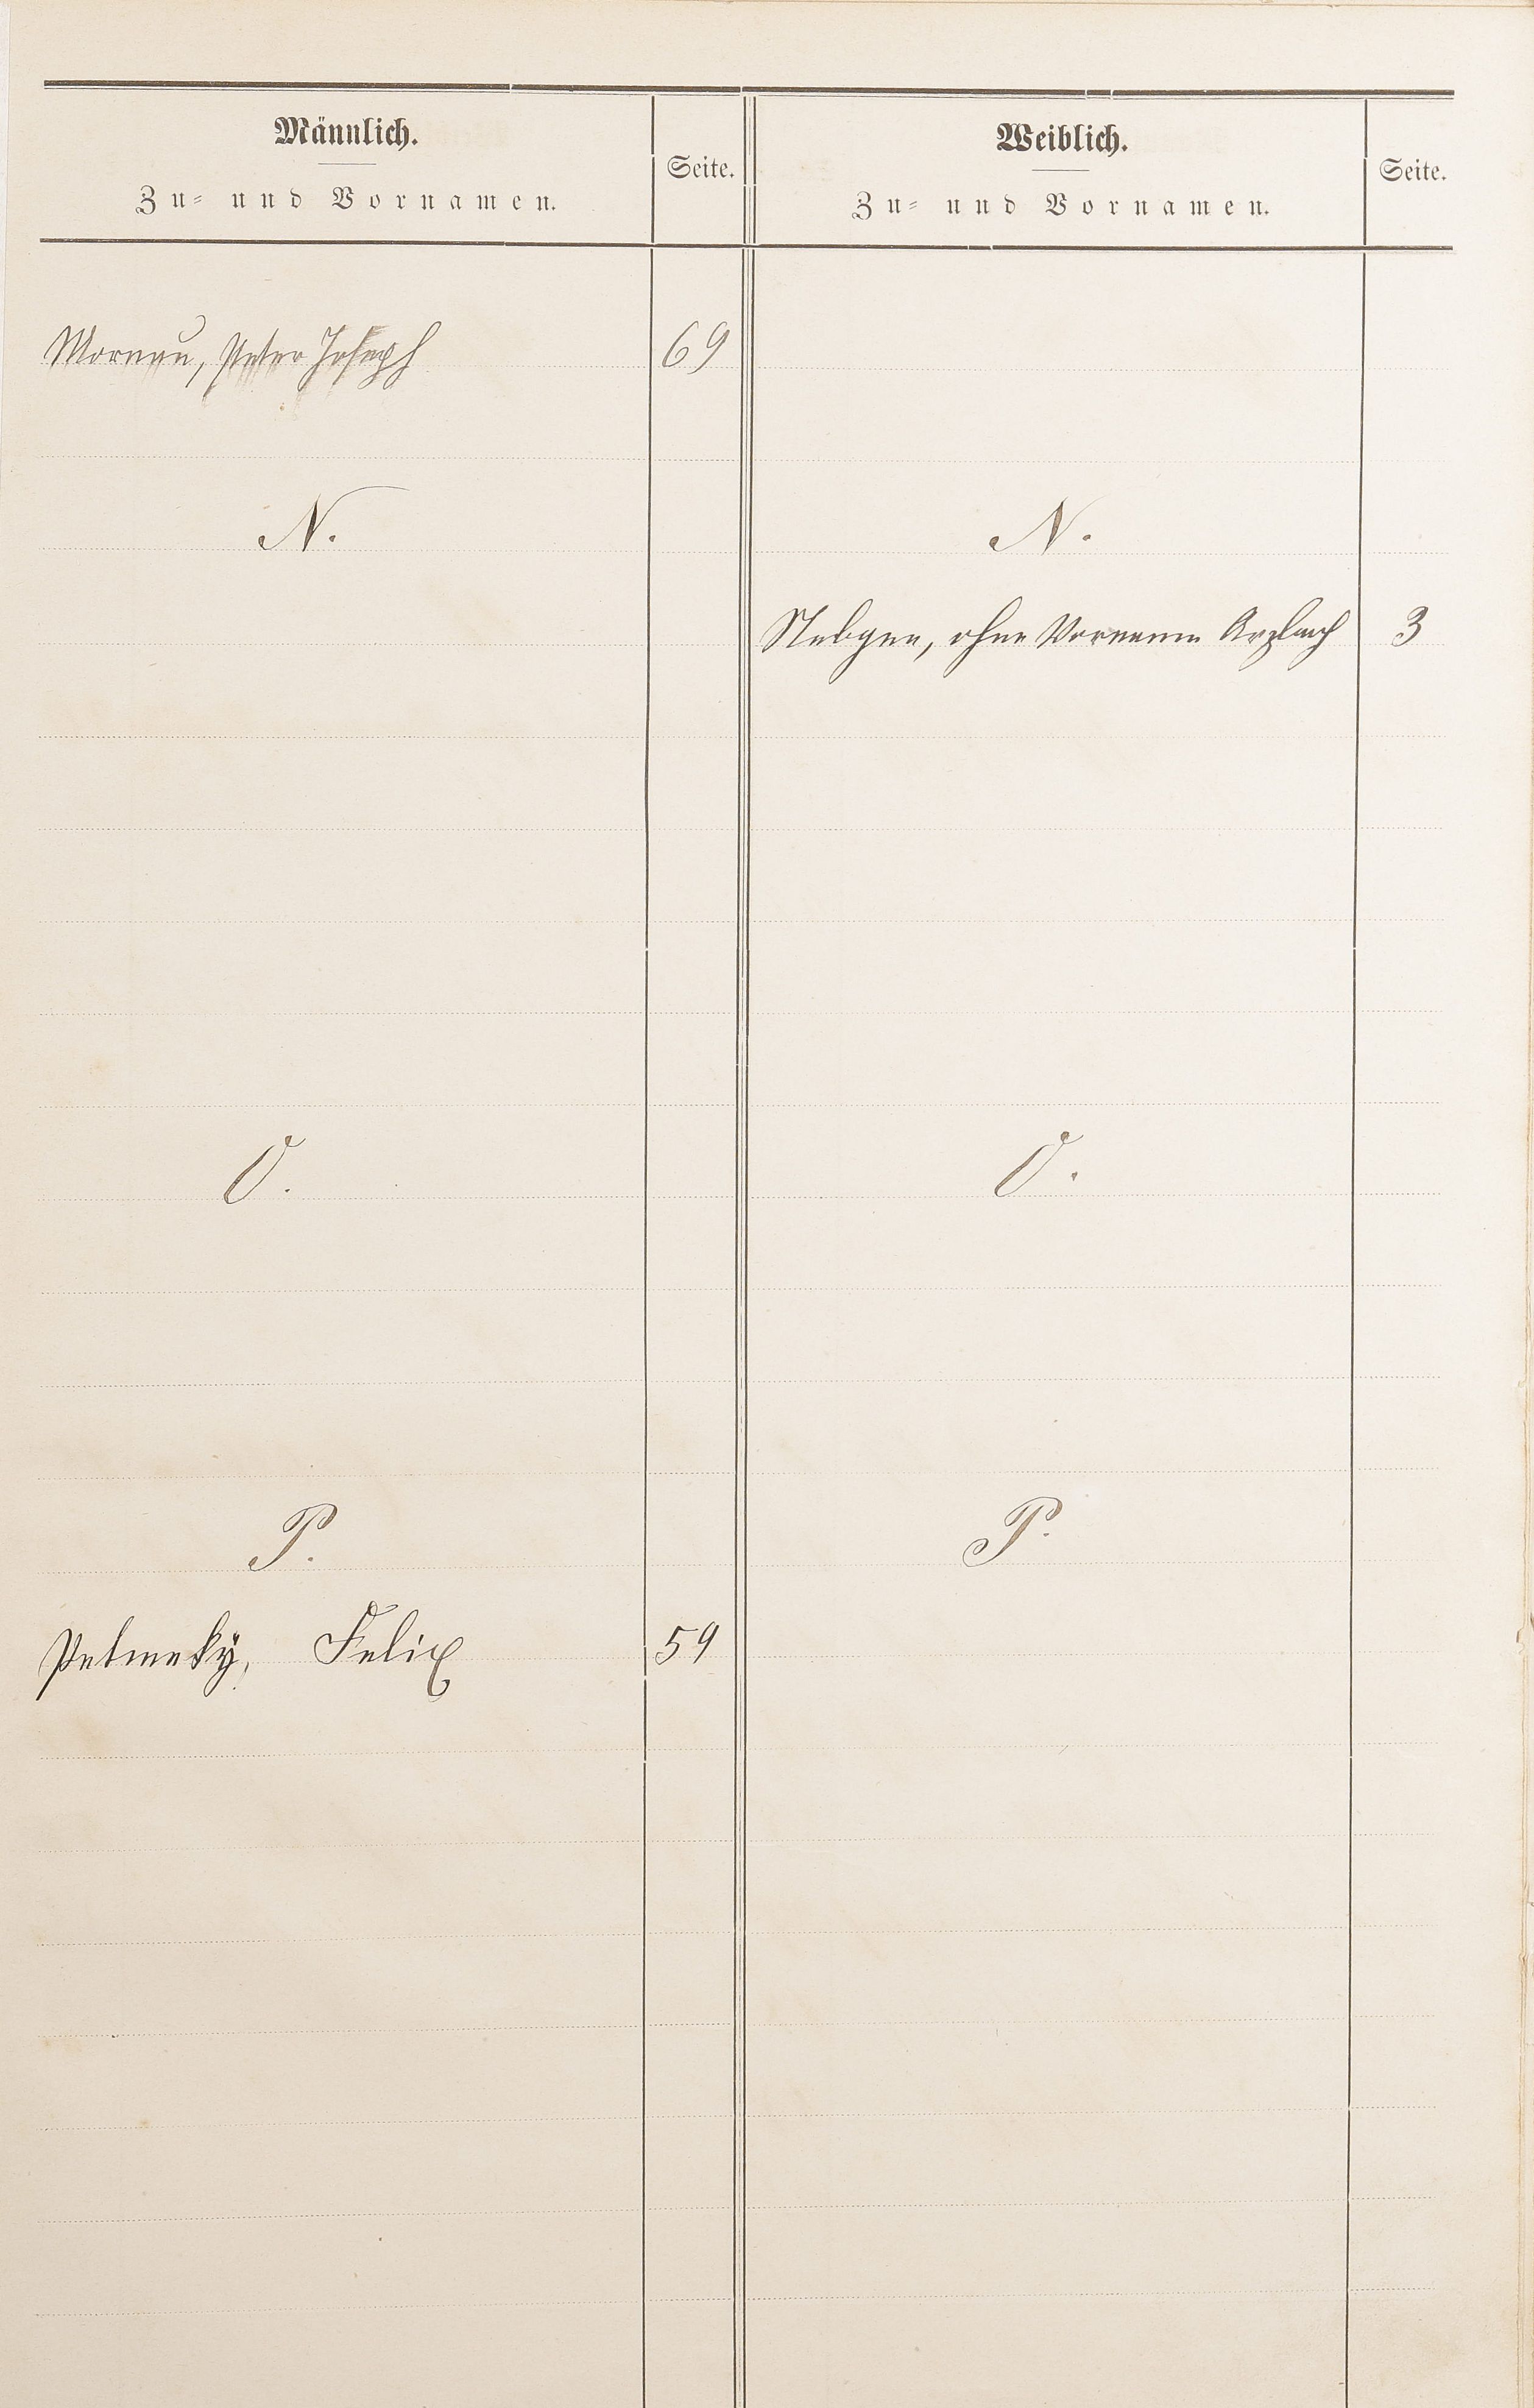 Männlich.
Zu- und Vornamen.
Seite.
Weiblich.
Zu- und Vornamen.
Seite.
Mornau, Peter Joseph 69
N. N.
Nebgen, ohne Vornamen Arzbach 3
O. O.
P. P.
Petmeky, Felix 59